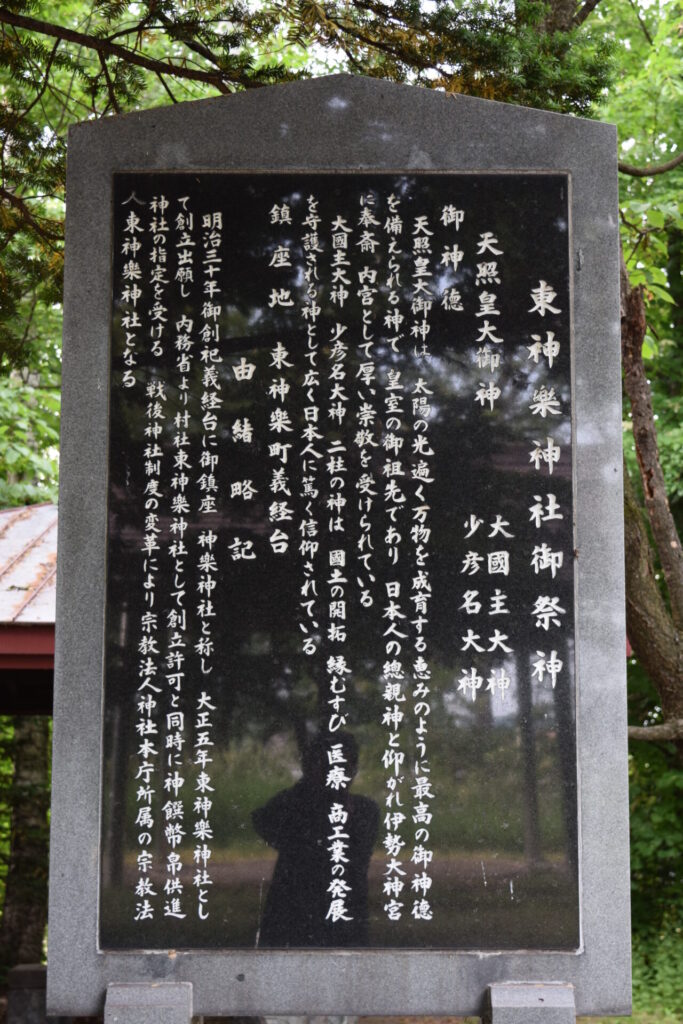 東神樂神社御祭神
天照皇大御神
大國主大神
少彦名大神
御神德
天照皇大御神は 太陽の光遍く万物を成育する恵みのように最高の御神德
を備えられる神で 皇室の御祖先であり 日本人の總親神と仰がれ伊勢大神宮
に奉斎 内宮として厚い崇敬を受けられている
大國主大神 少彦名大神 二柱の神は 國土の開拓 縁むすび 医療 商工業の発展
を守護される神として広く日本人に篤く信仰されている
鎮座地 東神楽町義経台
由緒略記
明治三十年御創祀義経台に御鎮座 神樂神社と称し 大正五年東神樂神社とし
て創立出願し 内務省より村社東神樂神社として創立許可と同時に神饌幣帛供進
神社の指定を受ける 戦後神社制度の変革により宗教法人神社本庁所属の宗教法
人東神樂神社となる